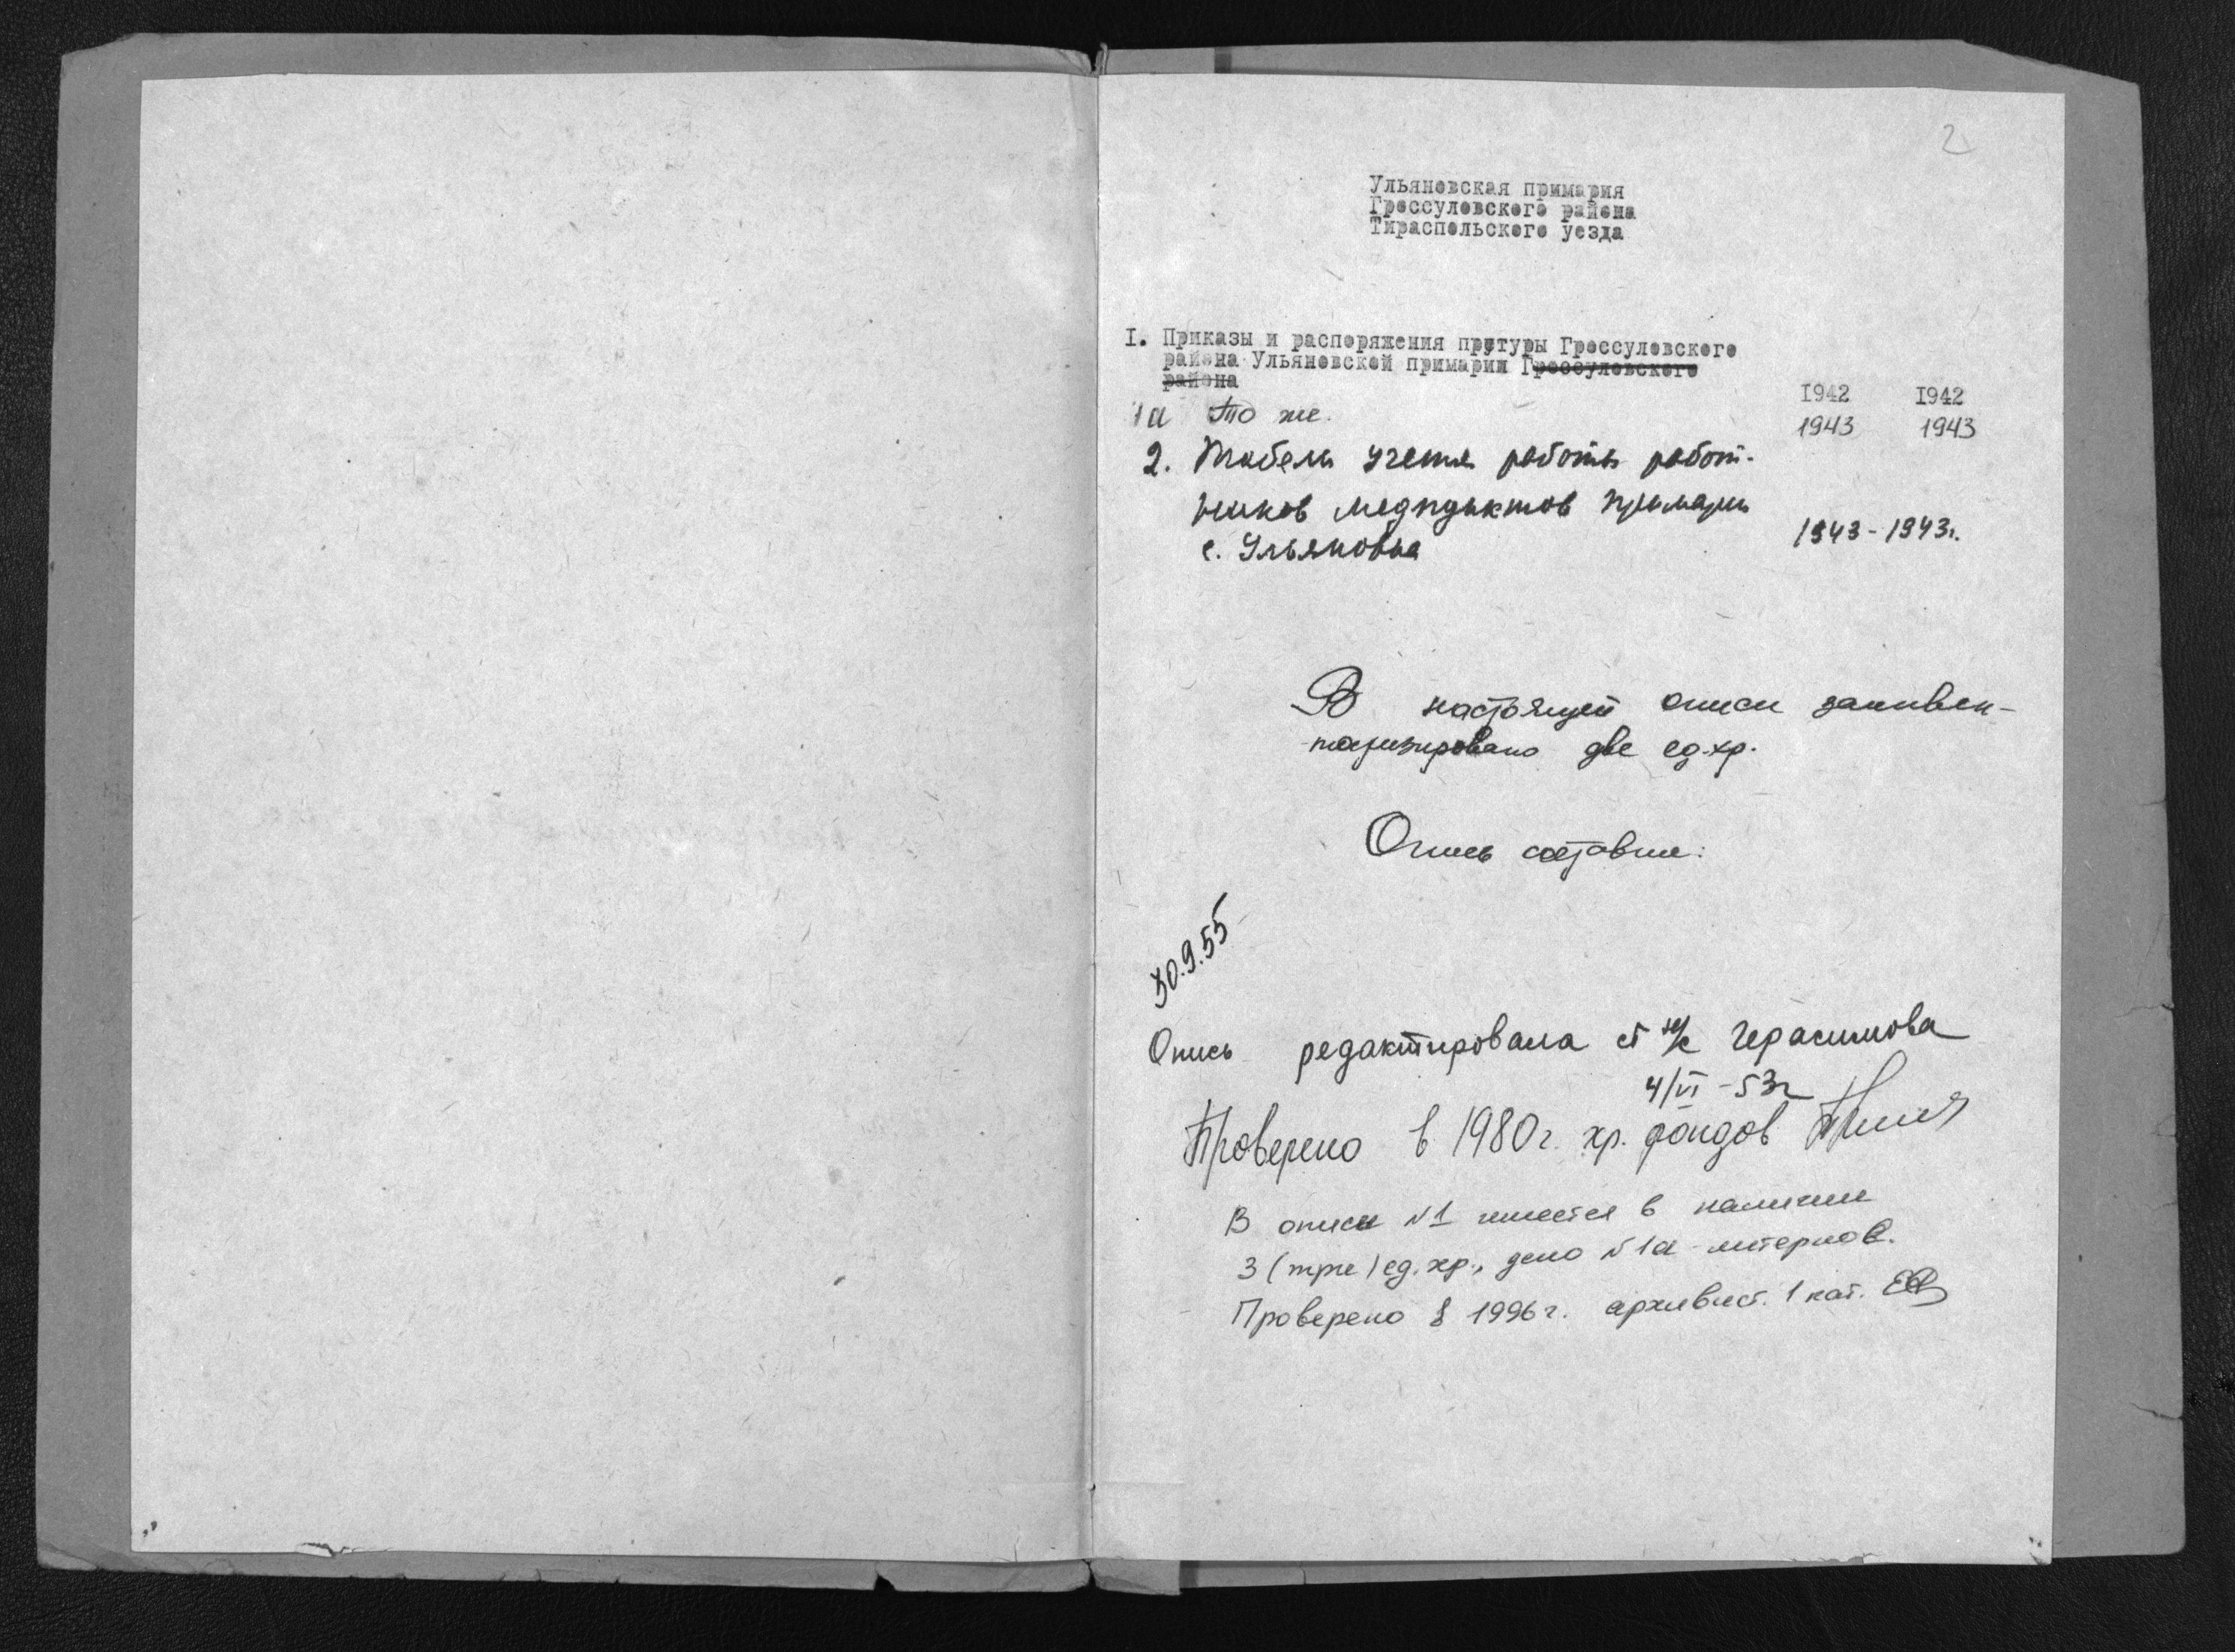 2
Ульяновская примария
Гроссуловского района
Тираспольского уезда
I. Приказы и распоряжения претуры Гроссуловского
района Ульяновской примарии Гроссуловского
района
I942 I942
1а То же. 1943 1943
2. Табель учета работы работ-
ников медпунктов примарии
с. Ульяновка 1943-1943г.
В настоящей описи заинвен-
таризировано две ед.хр.
Опись составил:
30.9.55
Опись редактировала ст н/с Герасимова
4/VI-53г
Проверено в 1980г. хр. фондов
В описи №1 имеется в наличии
3 (три) ед. хр., дело №1а - литерное.
Проверено в 1996г. архивист. 1 кат.